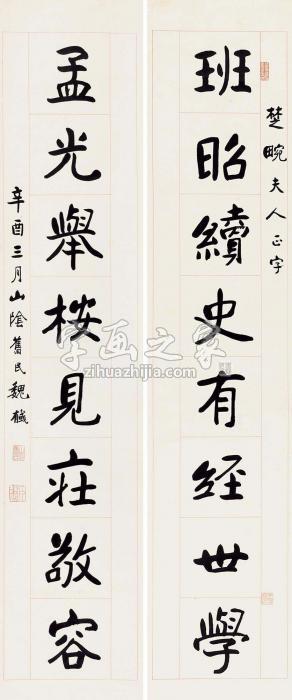 楚畹夫人正字
班昭續史有經世學
孟光舉桉見莊敬容
辛酉三月山陰舊民魏戫
字画之家
zihuazhijia.com